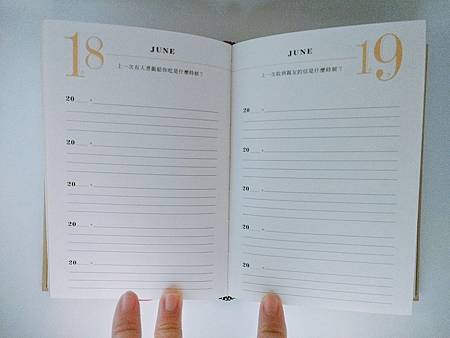 18
JUNE
上一次有人煮飯給你吃是什麼時候?
20___.
20___.
20___.
20___.
20___.
JUNE
19
上一次收到親友的信是什麼時候?
20___.
20___.
20___.
20___.
20___.